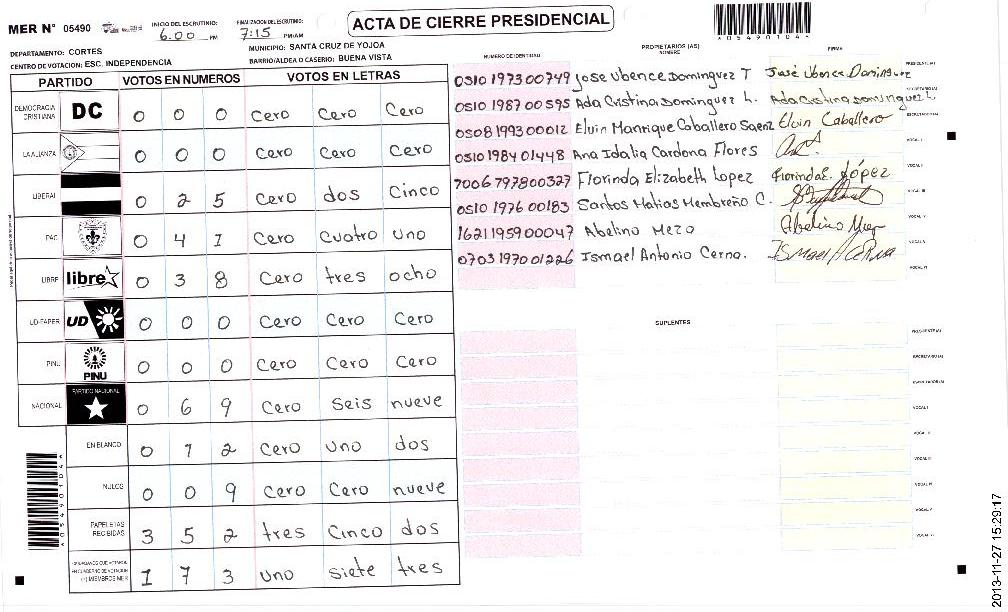 MER N° 05490
INICIO DEL ESCRUTINIO: 6:00 PM
FINALIZACION DEL ESCRUTINIO: 7:15 PM/AM
ACTA DE CIERRE PRESIDENCIAL
*05490104*
DEPARTAMENTO: CORTES
MUNICIPIO: SANTA CRUZ DE YOJOA
CENTRO DE VOTACION: ESC. INDEPENDENCIA
BARRIO/ALDEA O CASERIO: BUENA VISTA
PARTIDO VOTOS EN NUMEROS VOTOS EN LETRAS
DEMOCRACIA CRISTIANA DC 0 0 0 Cero Cero Cero
LA ALIANZA 0 0 0 Cero Cero Cero
LIBERAL 0 2 5 Cero dos Cinco
PAC 0 4 1 Cero Cuatro uno
LIBRE libre 0 3 8 Cero tres ocho
UD-FAPER UD 0 0 0 Cero Cero Cero
PINU PINU 0 0 0 Cero Cero Cero
NACIONAL PARTIDO NACIONAL 0 6 9 Cero seis nueve
EN BLANCO 0 1 2 Cero uno dos
NULOS 0 0 9 Cero Cero nueve
PAPELETAS RECIBIDAS 3 5 2 tres Cinco dos
CIUDADANOS QUE VOTARON EN CUADERNO DE VOTACION (+) MIEMBROS MER 1 7 3 uno siete tres
*05490104*
NUMERO DE IDENTIDAD PROPIETARIOS (AS) NOMBRE FIRMA
0510 1973 00749 Jose Ubence Dominguez T José Ubence Dominguez PRESIDENTE(A)
0510 1987 00595 Ada Cristina Dominguez L. Ada Cristina Dominguez L SECRETARIO(A)
0508 1993 00012 Elvin Manrique Caballero Saenz Elvin Caballero ESCRUTADOR(A)
0510 1984 01448 Ana Idalia Cardona Flores VOCAL I
7006 797800327 Florinda Elizabeth Lopez Florinda E. López VOCAL II
0510 1976 00183 Santos Matias Membreño C. VOCAL III
1621 1959 00047 Abelino Mezo Abelino VOCAL IV
0703 1970 01226 Ismael Antonio Cerna. Ismael A Cerna VOCAL V
VOCAL VI
SUPLENTES
PRESIDENTE(A)
SECRETARIO(A)
ESCRUTADOR(A)
VOCAL I
VOCAL II
VOCAL III
VOCAL IV
VOCAL V
VOCAL VI
2013-11-27 15:29:17